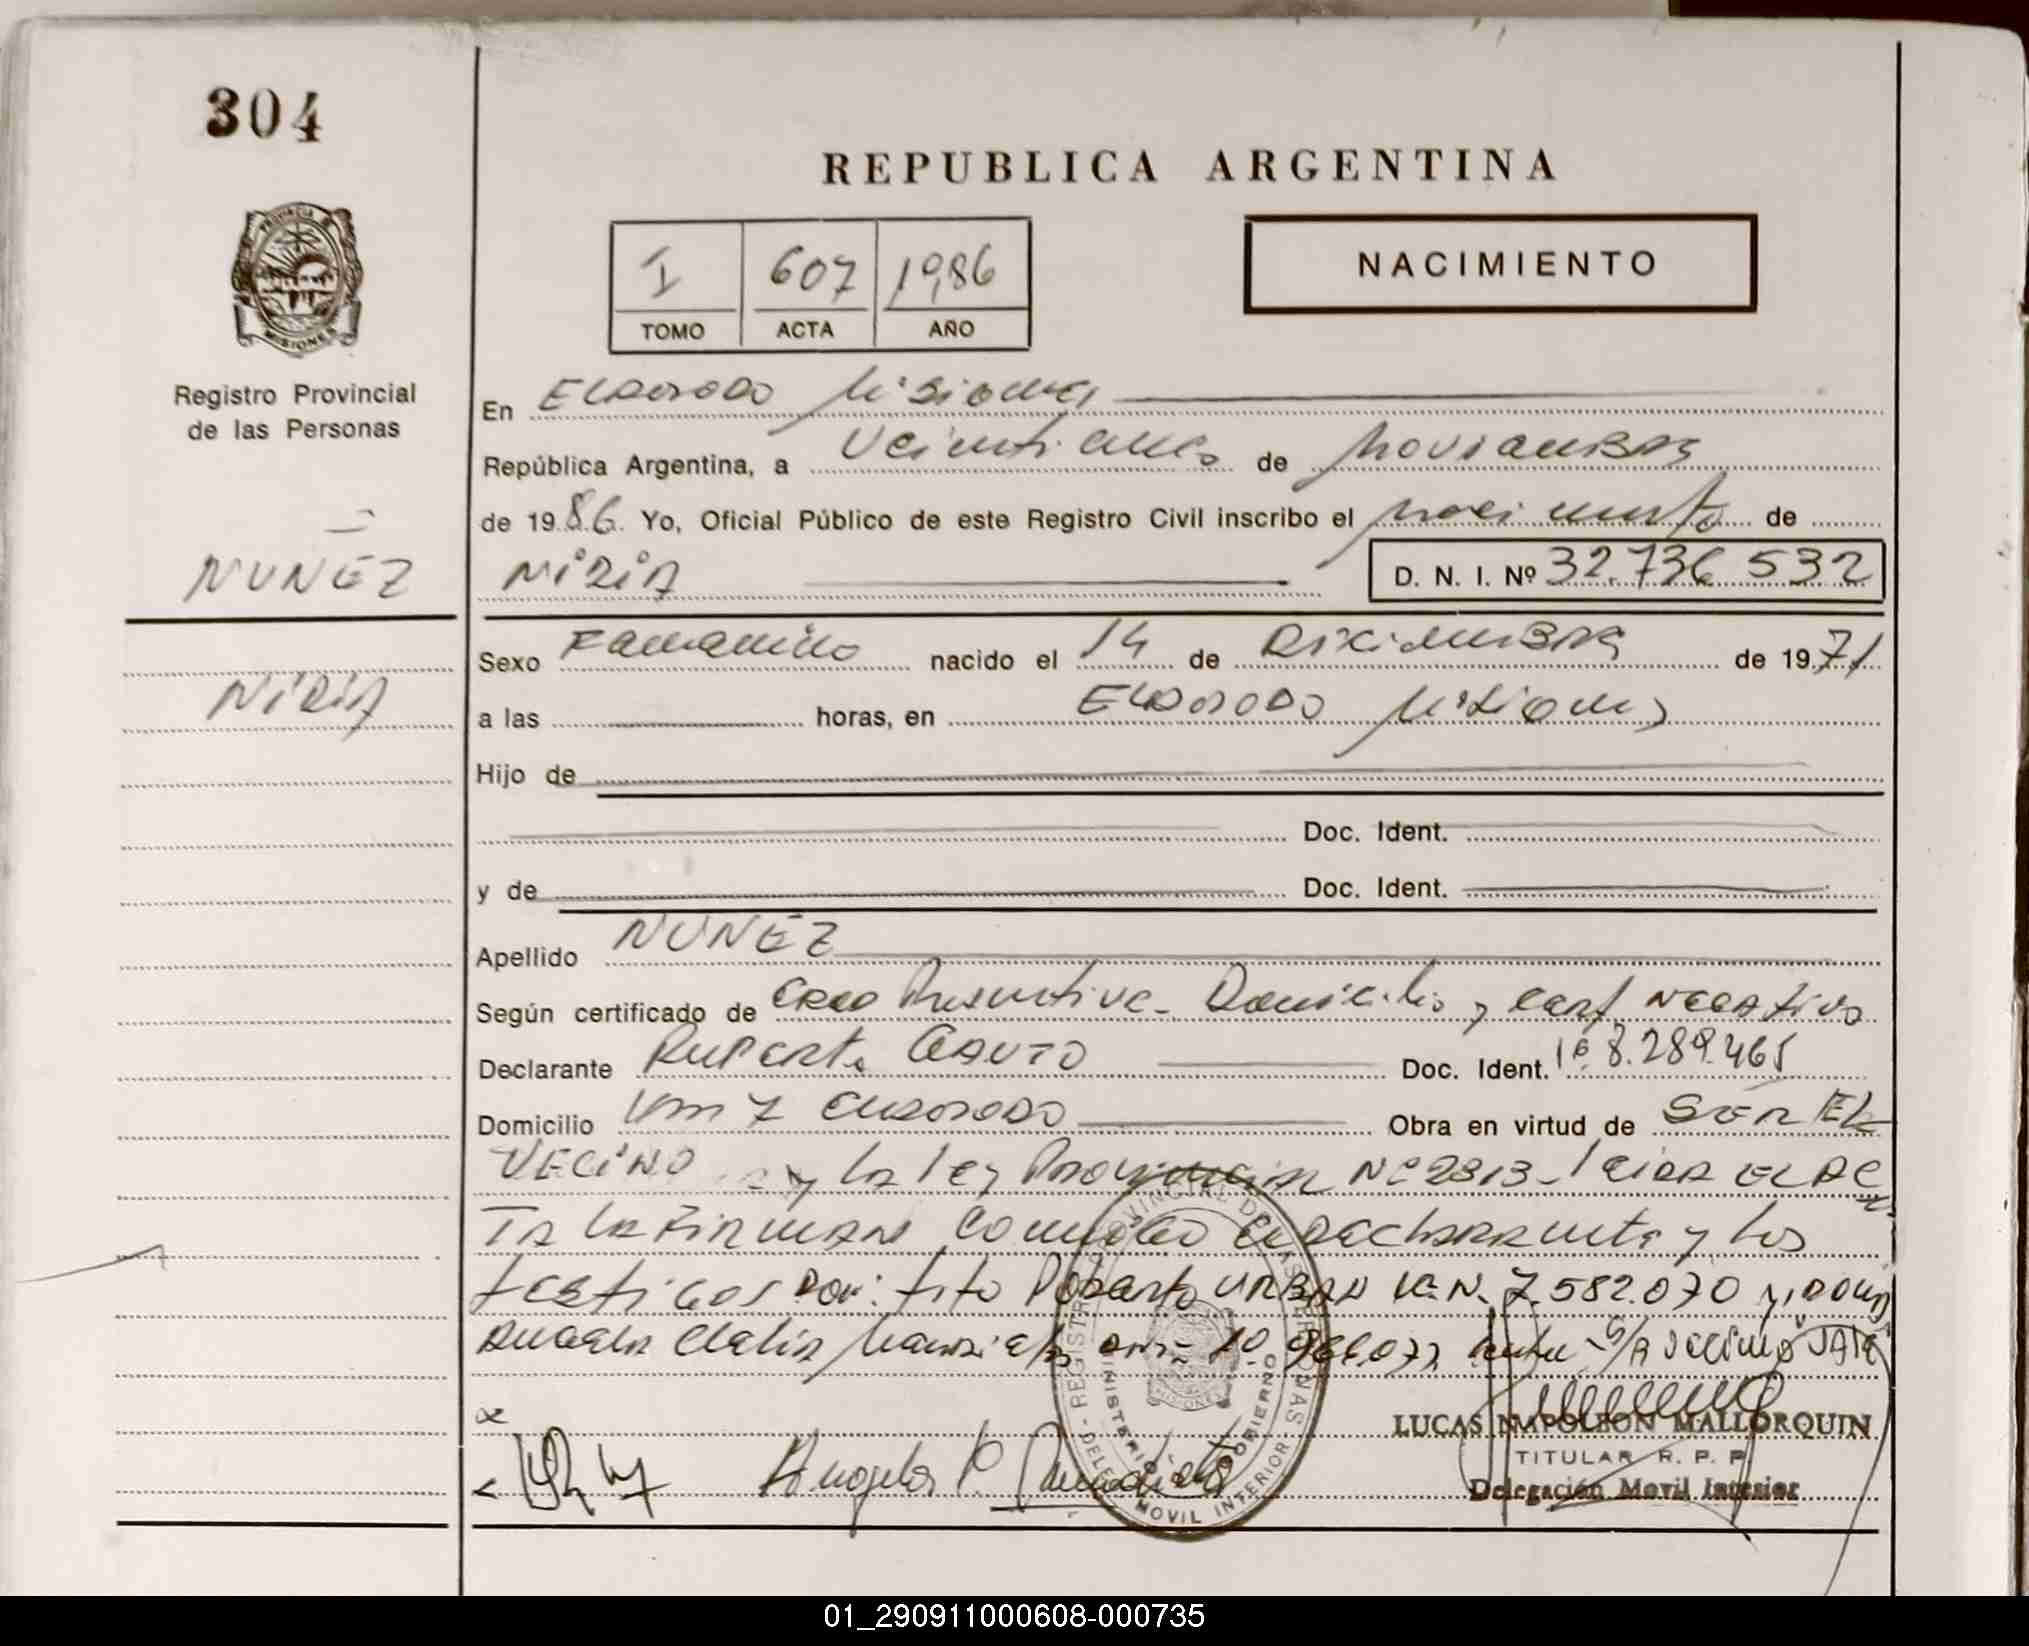 304
REPUBLICA ARGENTINA
I 607 1986
TOMO ACTA AÑO
NACIMIENTO
PROVINCIA DE MISIONES
Registro Provincial
de las Personas
En Eldorado Misiones
República Argentina, a veinticinco de Noviembre
de 1986. Yo, Oficial Público de este Registro Civil inscribo el nacimiento de
NUÑEZ
NiRiA D. N. I. Nº 32.736 532
Sexo Femenino nacido el 14 de Diciembre de 1971
NiRiA
a las horas, en Eldorado Misiones
Hijo de
Doc. Ident.
y de Doc. Ident.
Apellido NUÑEZ
Según certificado de Edad Presuntiva - Domicilio y Cert Negativo
Declarante Ruperto Gauto Doc. Ident. 8.289.465
Domicilio Km 7 Eldorado Obra en virtud de SER EL
VECINO y la ley Provincial Nº 2313 - leida el Ac
ta la firman conmigo el declarante y los
testigos Don: Tito Roberto 7.582.070 y Doña
Angela Clelia
LUCAS NAPOLEON MALLORQUIN
TITULAR R. P. P.
Delegación Movil Interior
Angela
REGISTRO PROVINCIAL DE LAS PERSONAS
MINISTERIO DE GOBIERNO
DELEG. MOVIL INTERIOR
01_290911000608-000735